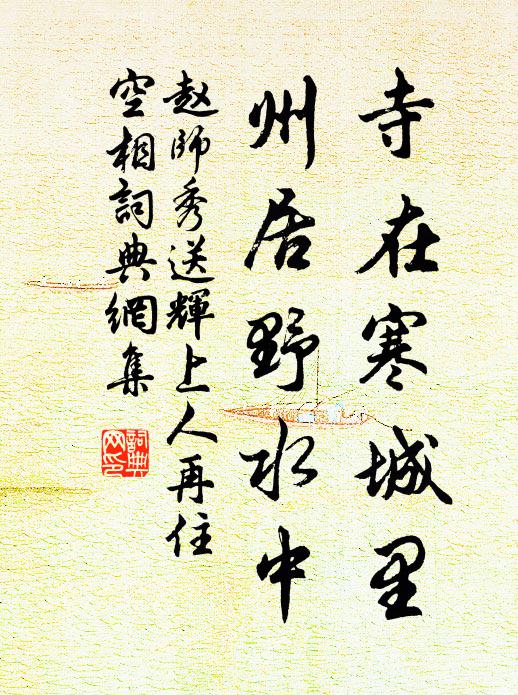 寺在寒城里
州居野水中
赵師秀送輝上人再住
空相詞典網集
詞典网印